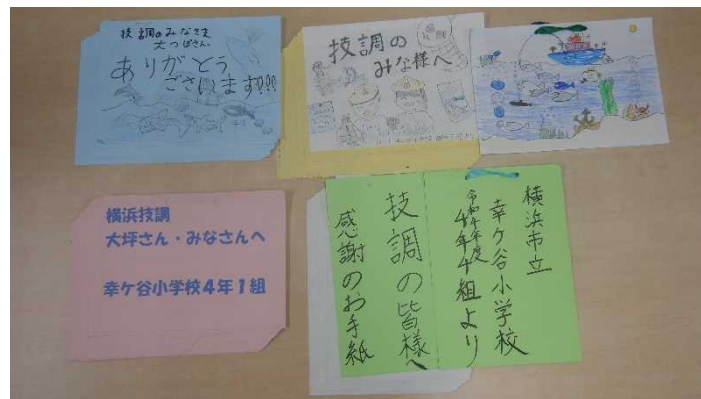 技調のみなさま
大つぼさん
ありがとう
ございます!!!
技調の
みな様へ
横浜技調
大坪さん・みなさんへ
幸ケ谷小学校4年1組
横浜市立
幸ケ谷小学校
令和4年度
4年4組より
技調の皆様へ
感謝のお手紙